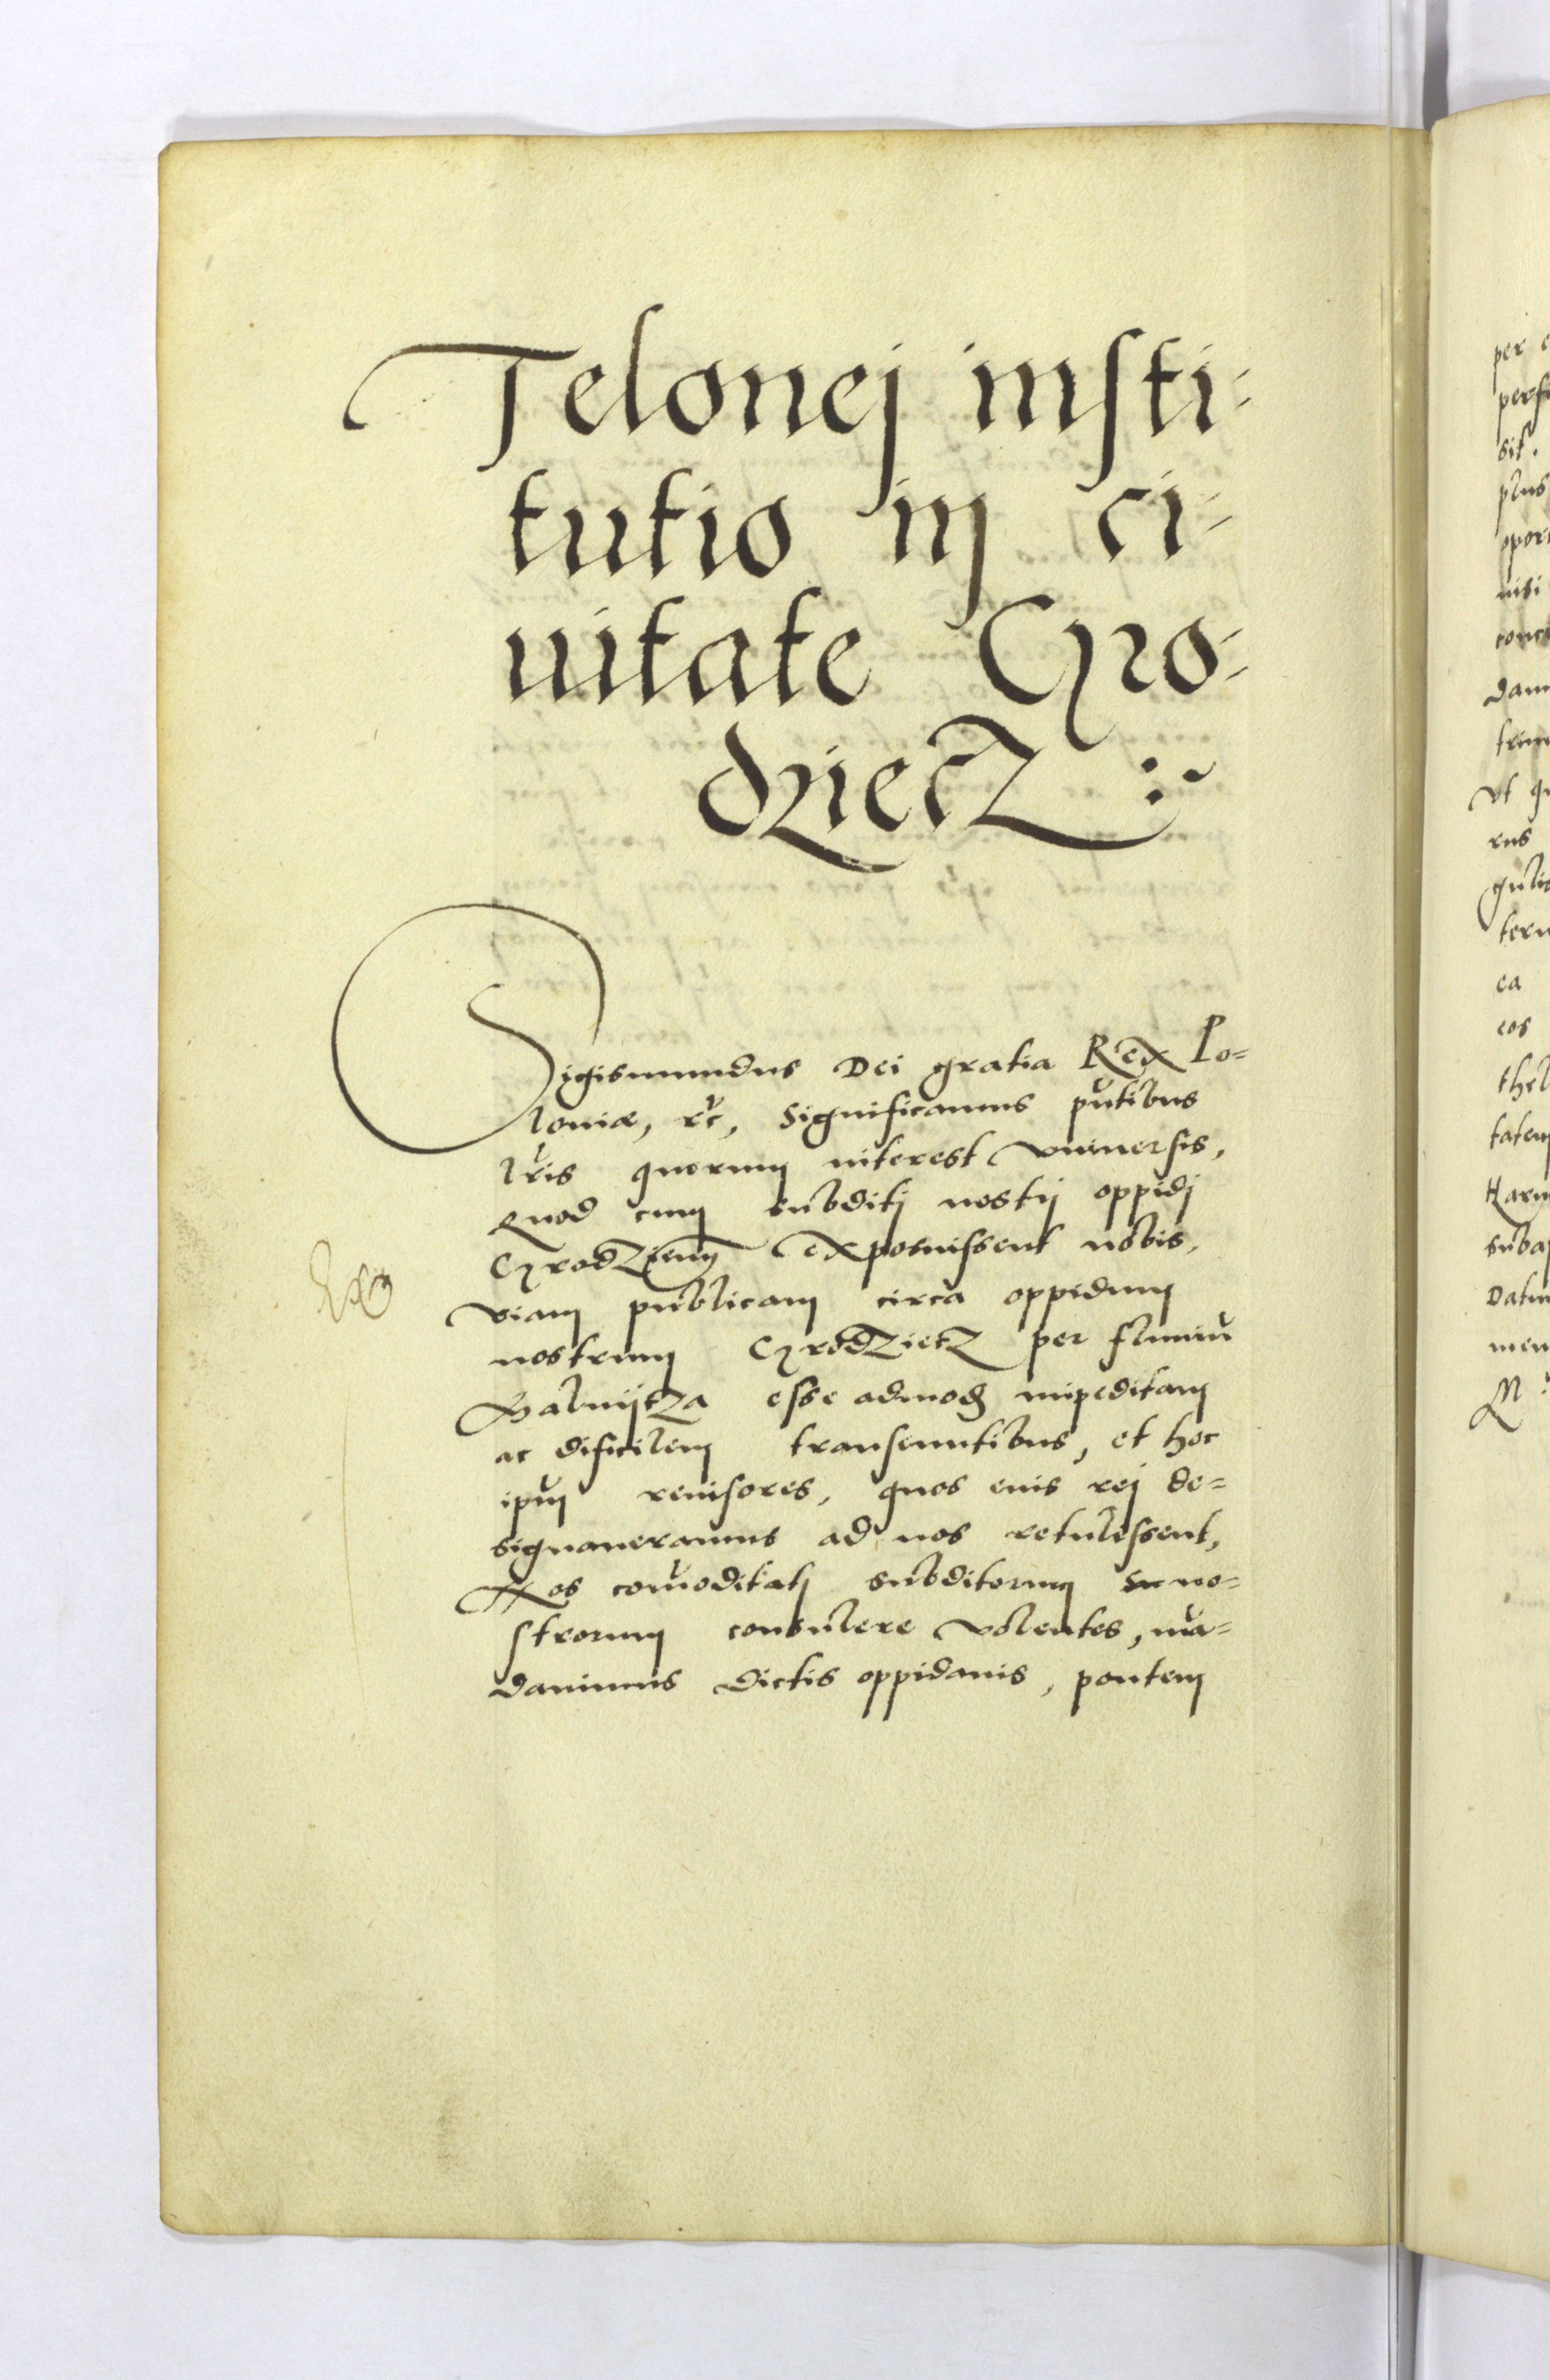 Telonej insti-
tutio in ci-
uitate Gro-
dziecz :~
Sigismundus Dei gratia Rex Po=
loniæ, etc, Significamus pñtibus
lr̃is quorum interest vniuersis,
Quod cum subditj nostrj oppidj
Grodzien̄ exposuissent nobis,
viam publicam circa oppidum
nostrum Grodziecz per fluuiũ
esse admodũ impeditam
ac dificilem transeuntibus, et hoc
ipm̃ reuisores, quos euis rej de=
signaueramus ad nos retulissent,
Nos com̃oditatj subditorum no=
strorum consulere volentes, mã=
dauimus dictis oppidanis, pontem
per
perf
sit.
plus
opor
nisi
conc
dam
trim
vt
rus
gulis
tern
ea
eos
thel
tatem
Harum
suba
Datum
men
M